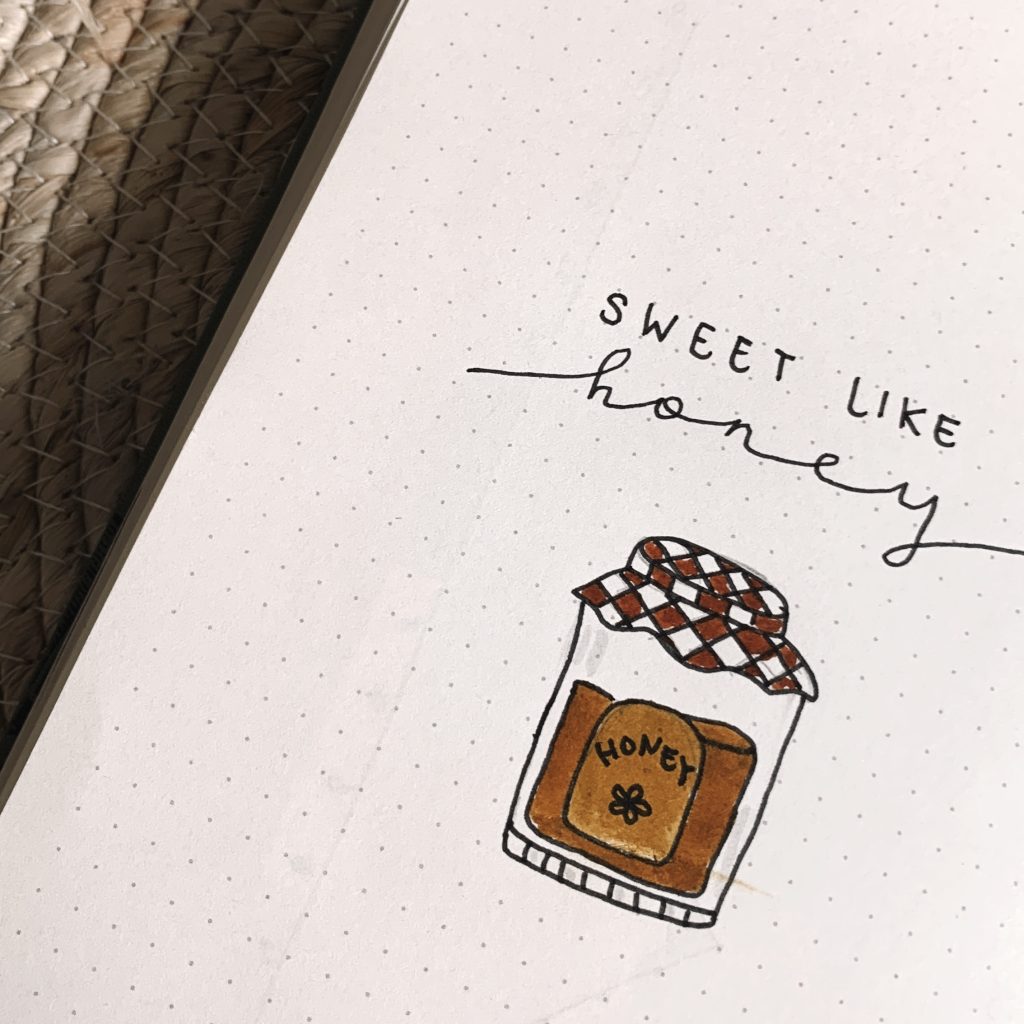 SWEET LIKE
honey
HONEY